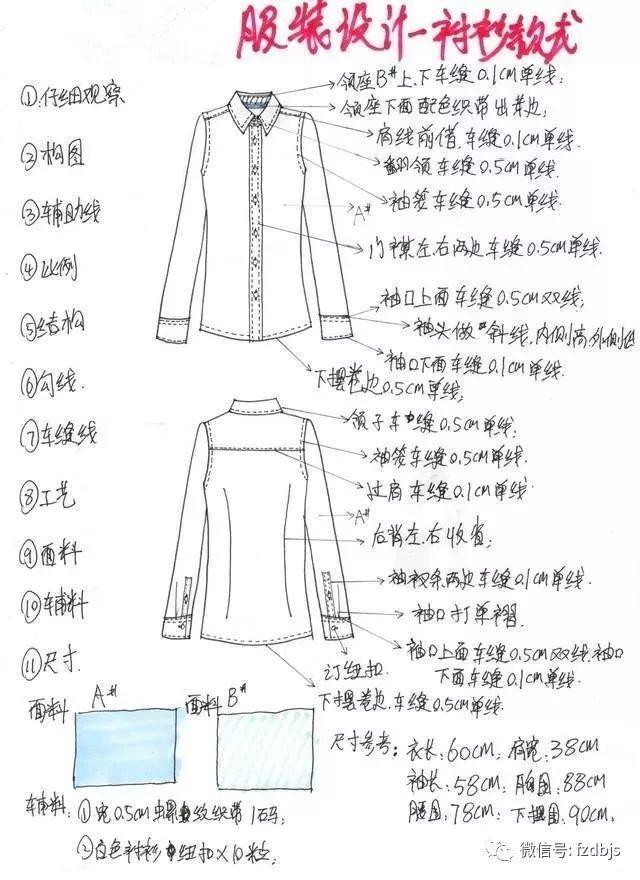 服装设计-衬衫款式
①仔细观察
②构图
③辅助线
④比例
⑤结构
⑥勾线
⑦车缝线
⑧工艺
⑨面料
⑩辅料
⑪尺寸
领座B#上、下车缝0.1cm单线;
领座下面配色织带出芽边;
肩线前借,车缝0.1cm单线.
翻领车缝0.5cm单线.
袖笼车缝0.5cm单线.
A#
门襟左、右两边车缝0.5cm单线.
袖口上面车缝0.5cm双线;
袖头做斜线,内侧高外侧低
袖口下面车缝0.1cm单线.
下摆卷边0.5cm单线;
领子车缝0.5cm单线;
袖笼车缝0.5cm单线.
过肩车缝0.1cm单线.
A#
后背左、右收省;
袖衩条两边车缝0.1cm单线.
袖口打单褶.
袖口上面车缝0.5cm双线,袖口
下面车缝0.1cm单线.
订纽扣
下摆卷边,车缝0.5cm单线.
面料 A#
面料 B#
尺寸参考:衣长:60cm,肩宽:38cm
袖长:58cm,胸围:88cm
腰围:78cm;下摆围:90cm,
辅料:①宽0.5cm螺纹织带1码;
②白色衬衫纽扣×10粒;
微信号:fzdbjs